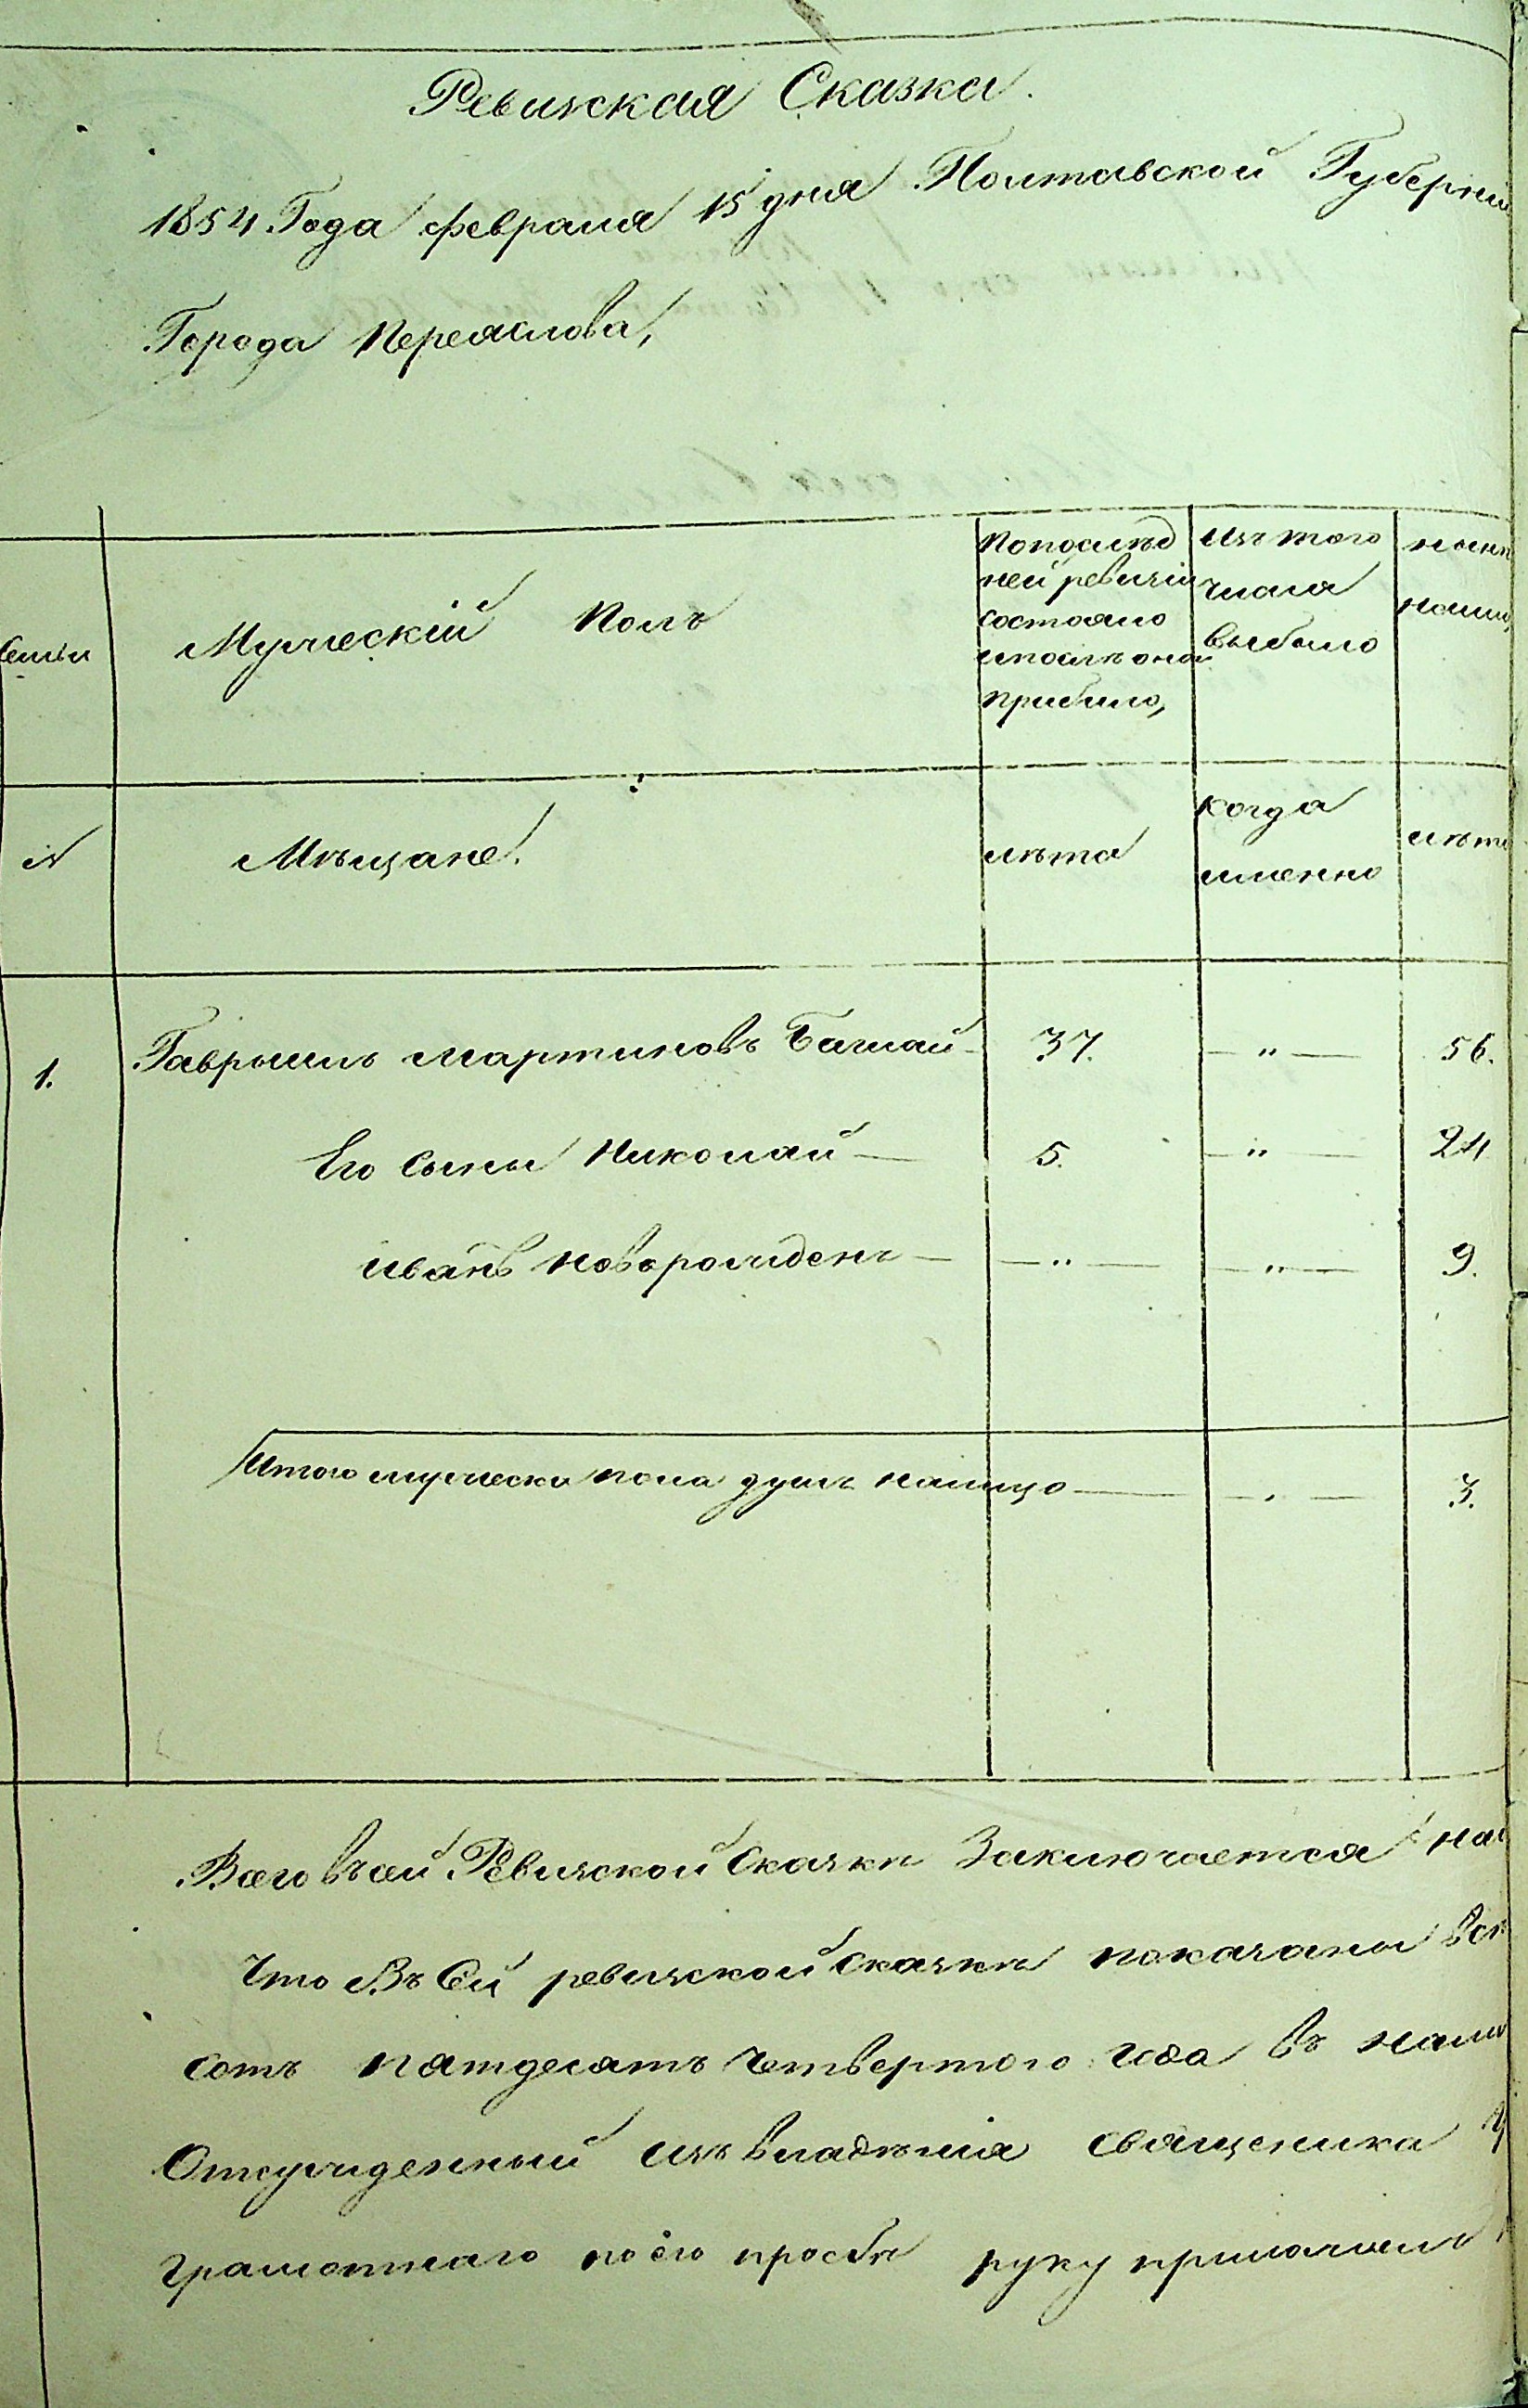 Ревизская Сказка.
1854 Года февраля 15 дня Полтавской Губерніи
Города Переяслова,
Семьи
Мужескій Полъ
Попослѣд
ней ревизіи
состояло
ипослѣ оной
прибыло,
Изъ того
числа
выбыло
нынѣ
налицо
№
Мѣщане.
лѣта
когда
именно
лѣта
1. Гаврыилъ Мартиновъ Баглай 37. — " — 56.
Его Сыны Николай — 5. — " — 24
Иванъ новорожденъ — — " — — " — 9.
Итого мужеска пола душъ налицо — — " — 3.
Всего въ сей Ревизской Сказкѣ Заключается
Что Въ Сей ревизской Сказкѣ показаны всѣ
сотъ пятдесятъ четвертого года въ
Отсужденный изъ владѣнія священика
грамотнаго по его просбѣ руку приложилъ